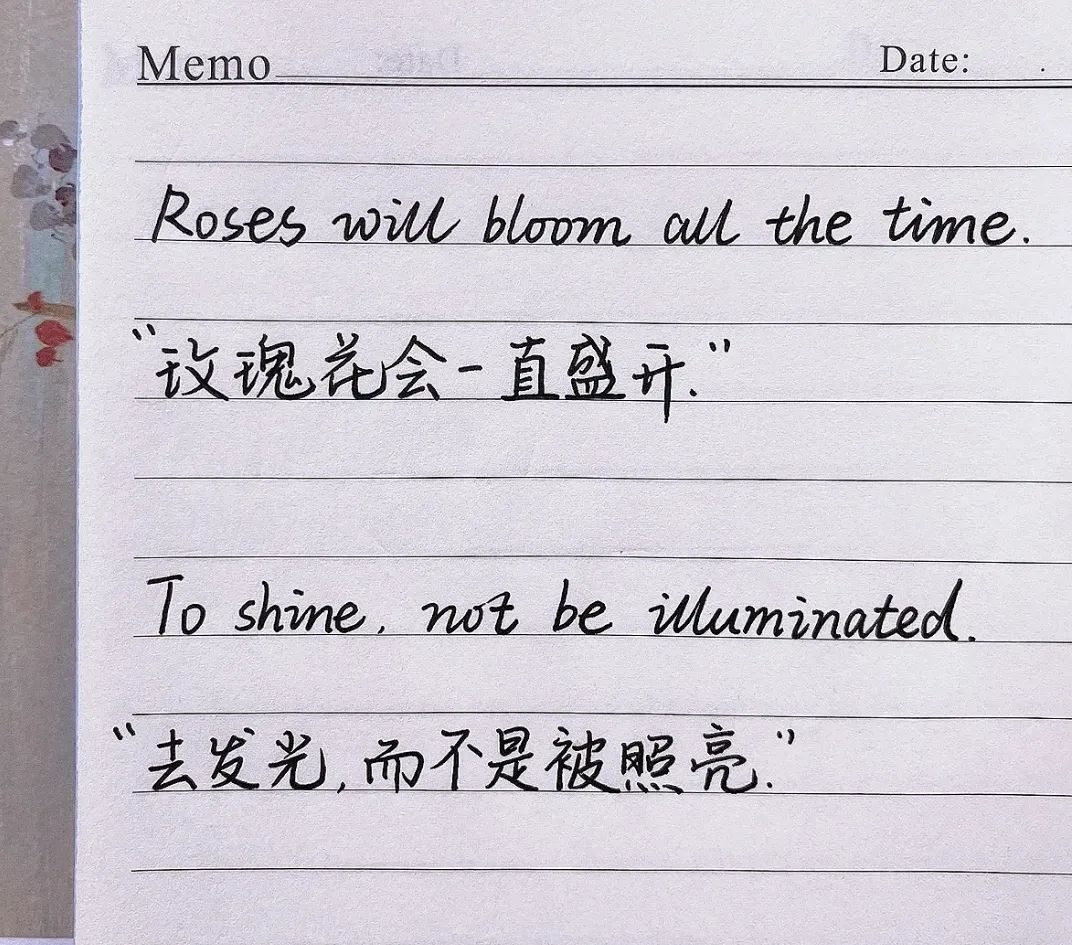 Memo Date: .
Roses will bloom all the time.
"玫瑰花会一直盛开."
To shine, not be illuminated.
"去发光,而不是被照亮."